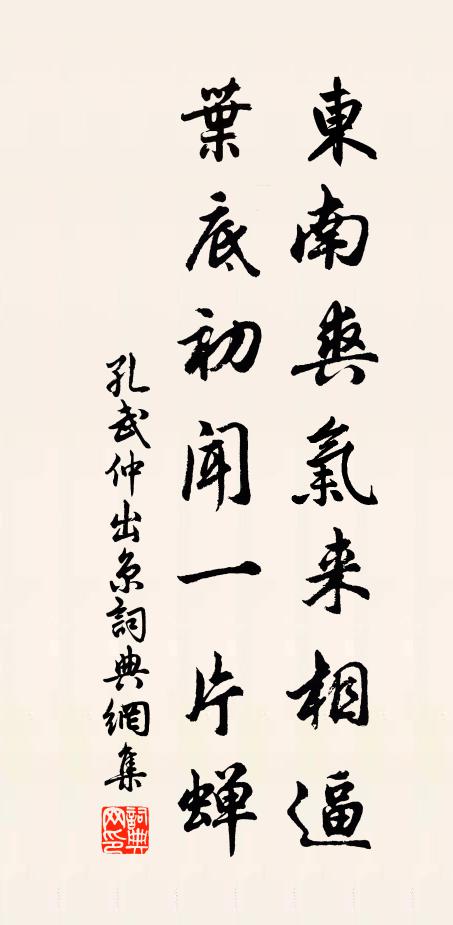 東南爽氣来相逼
葉底初聞一片蝉
孔武仲出京詞典網集
詞典网印